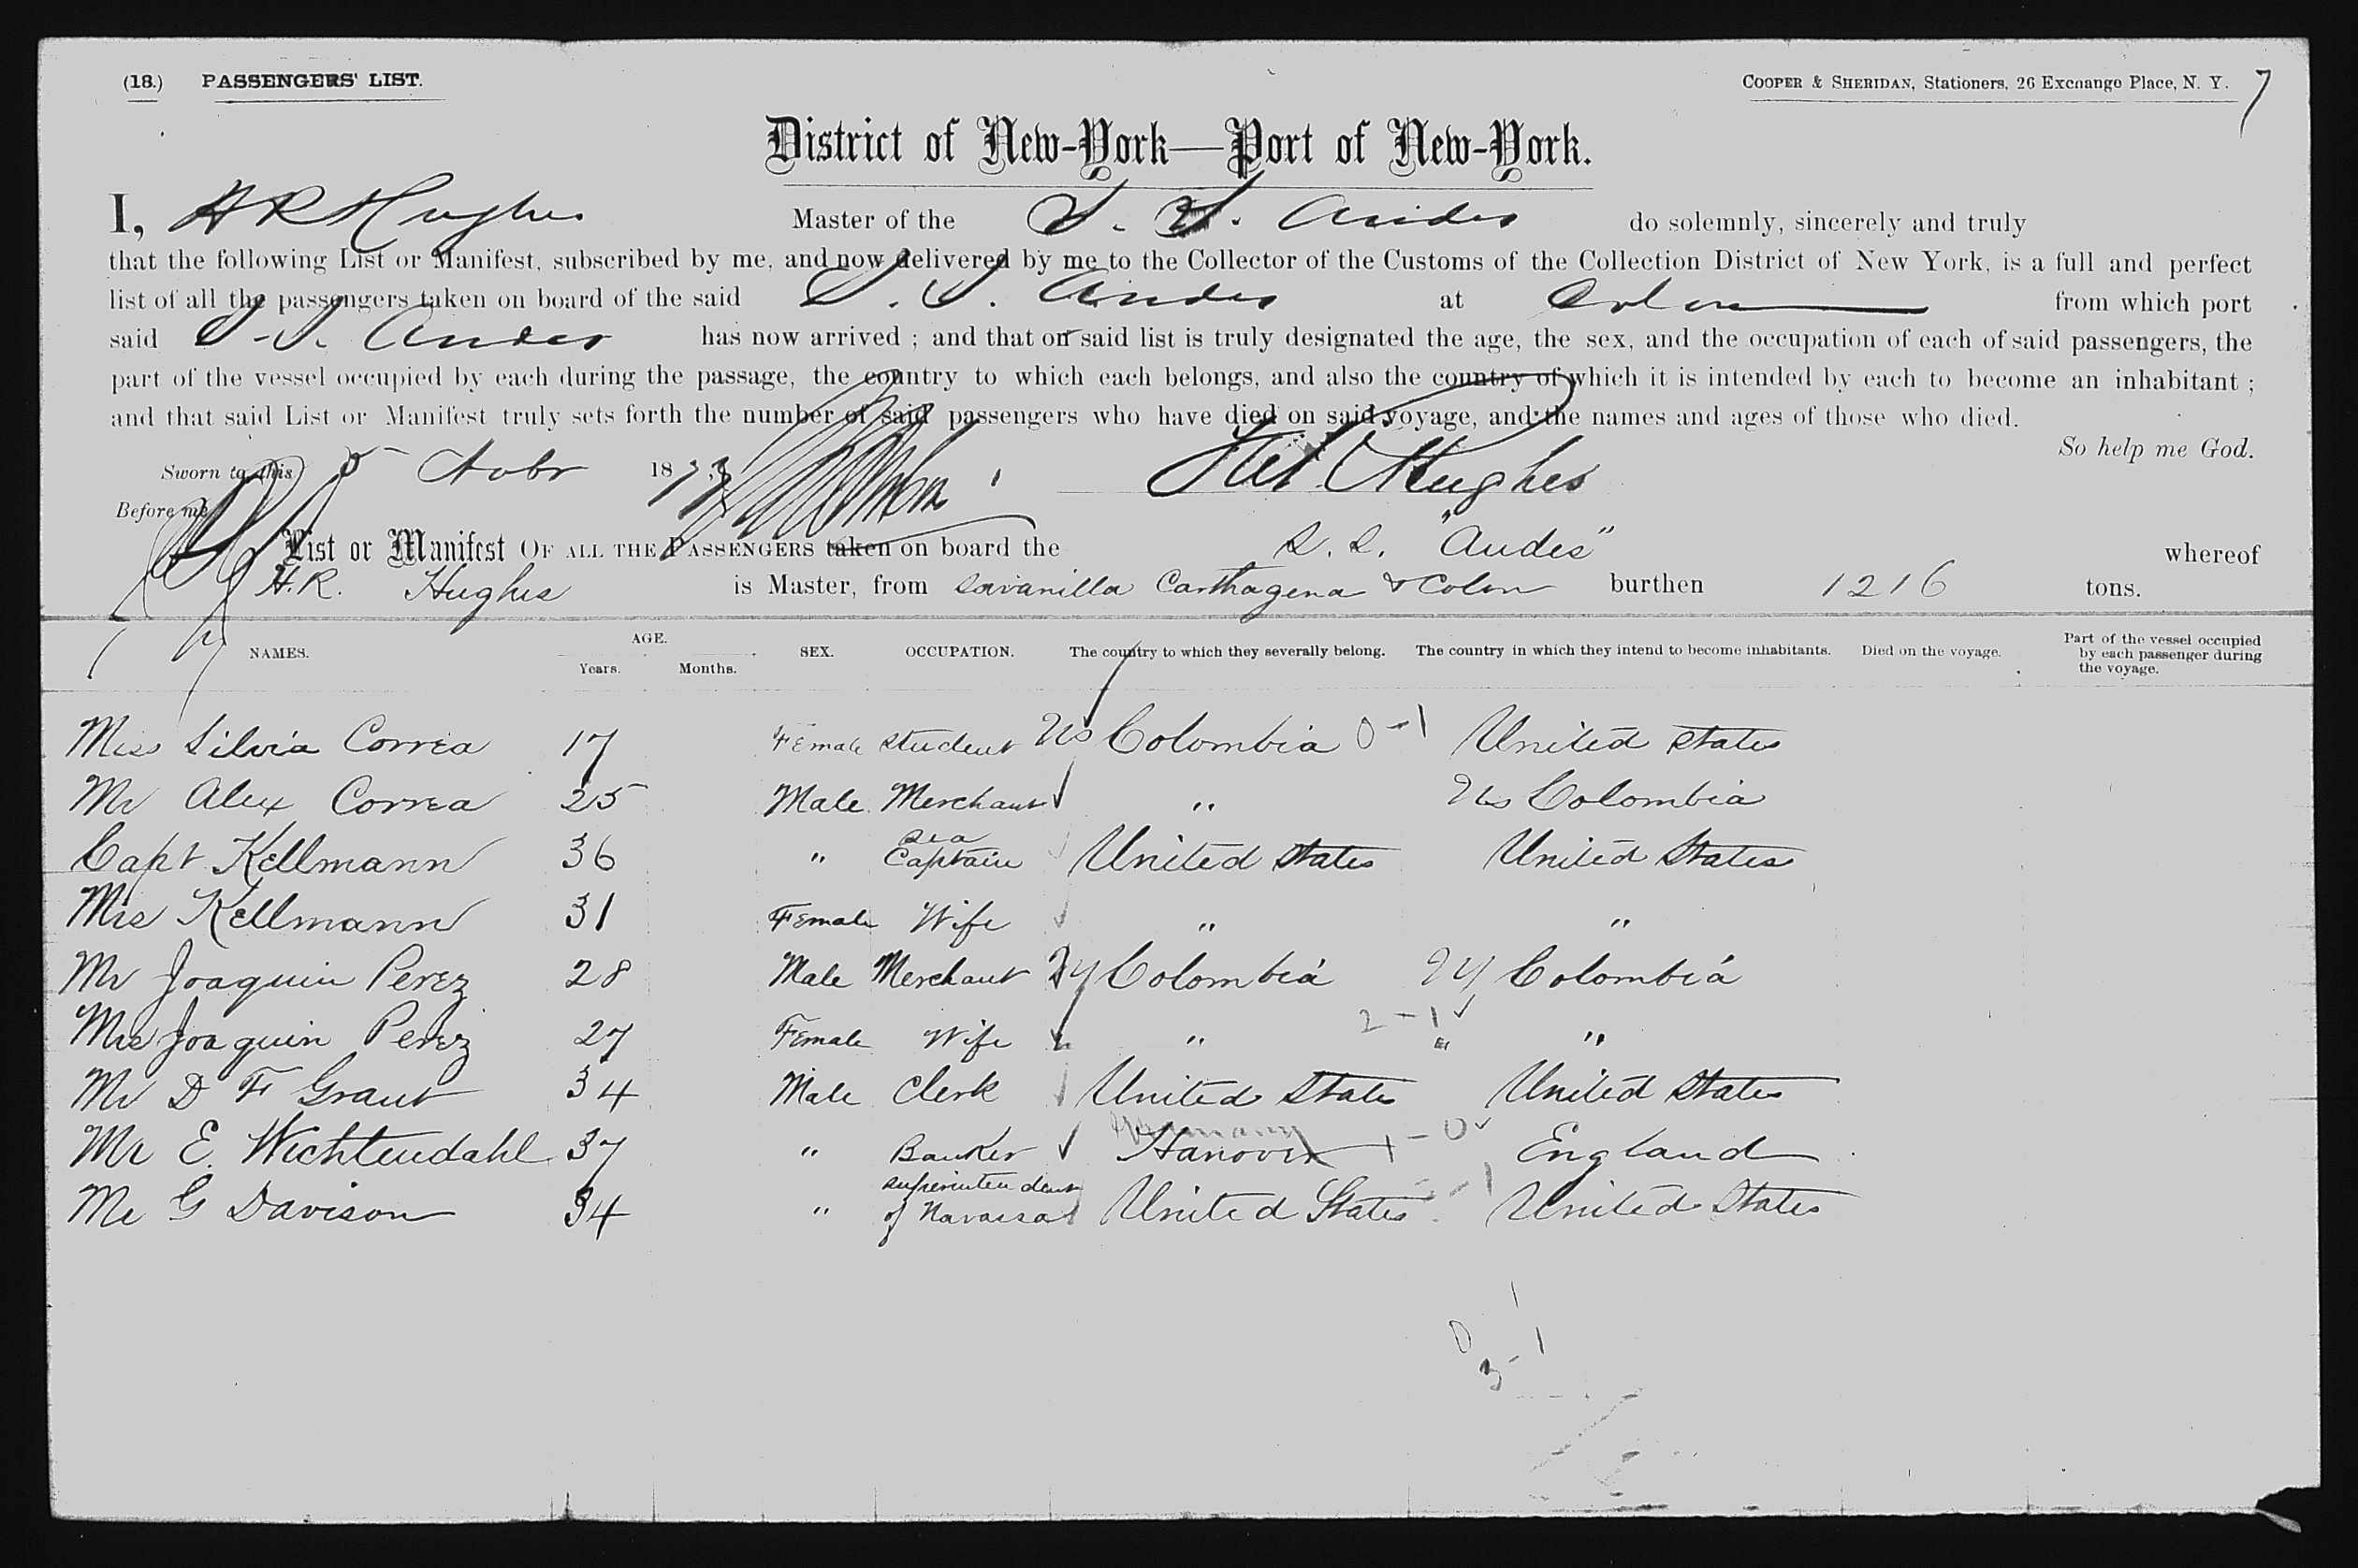 (18.) PASSENGERS' LIST. COOPER & SHERIDAN, Stationers, 26 Exchange Place, N. Y. 7
District of New-York—Port of New-York.
I, H R Hughes Master of the S. S. Andes do solemnly, sincerely and truly
that the following List or Manifest, subscribed by me, and now delivered by me to the Collector of the Customs of the Collection District of New York, is a full and perfect
list of all the passengers taken on board of the said S. S. Andes at Colon from which port
said S. S. Andes has now arrived ; and that on said list is truly designated the age, the sex, and the occupation of each of said passengers, the
part of the vessel occupied by each during the passage, the country to which each belongs, and also the country of which it is intended by each to become an inhabitant ;
and that said List or Manifest truly sets forth the number of said passengers who have died on said voyage, and the names and ages of those who died.
So help me God.
Sworn to this 5 Novbr 1873 Hughes
Before me
List or Manifest OF ALL THE PASSENGERS taken on board the S. S. "Andes" whereof
H. R. Hughes is Master, from Savanilla Carthagena & Colon burthen 1216 tons.
NAMES. AGE. Years. Months. SEX. OCCUPATION. The country to which they severally belong. The country in which they intend to become inhabitants. Died on the voyage. Part of the vessel occupied by each passenger during the voyage.
Miss Silvia Correa 17 Female Student US Colombia 0-1 United States
Mr Alex Correa 25 Male Merchant " US Colombia
Capt Kellmann 36 " Sea Captain United States United States
Mrs Kellmann 31 Female Wife " "
Mr Joaquin Perez 28 Male Merchant Colombia Colombia
2-1
Mrs Joaquin Perez 27 Female Wife " "
Mr D F Grant 34 Male Clerk United States United States
Mr E. Wichtendahl 37 " Banker Germany Hanover 1-0 England
Mr G Davison 34 " Superintendent of Navassa United States United States
1
0 1
3-1